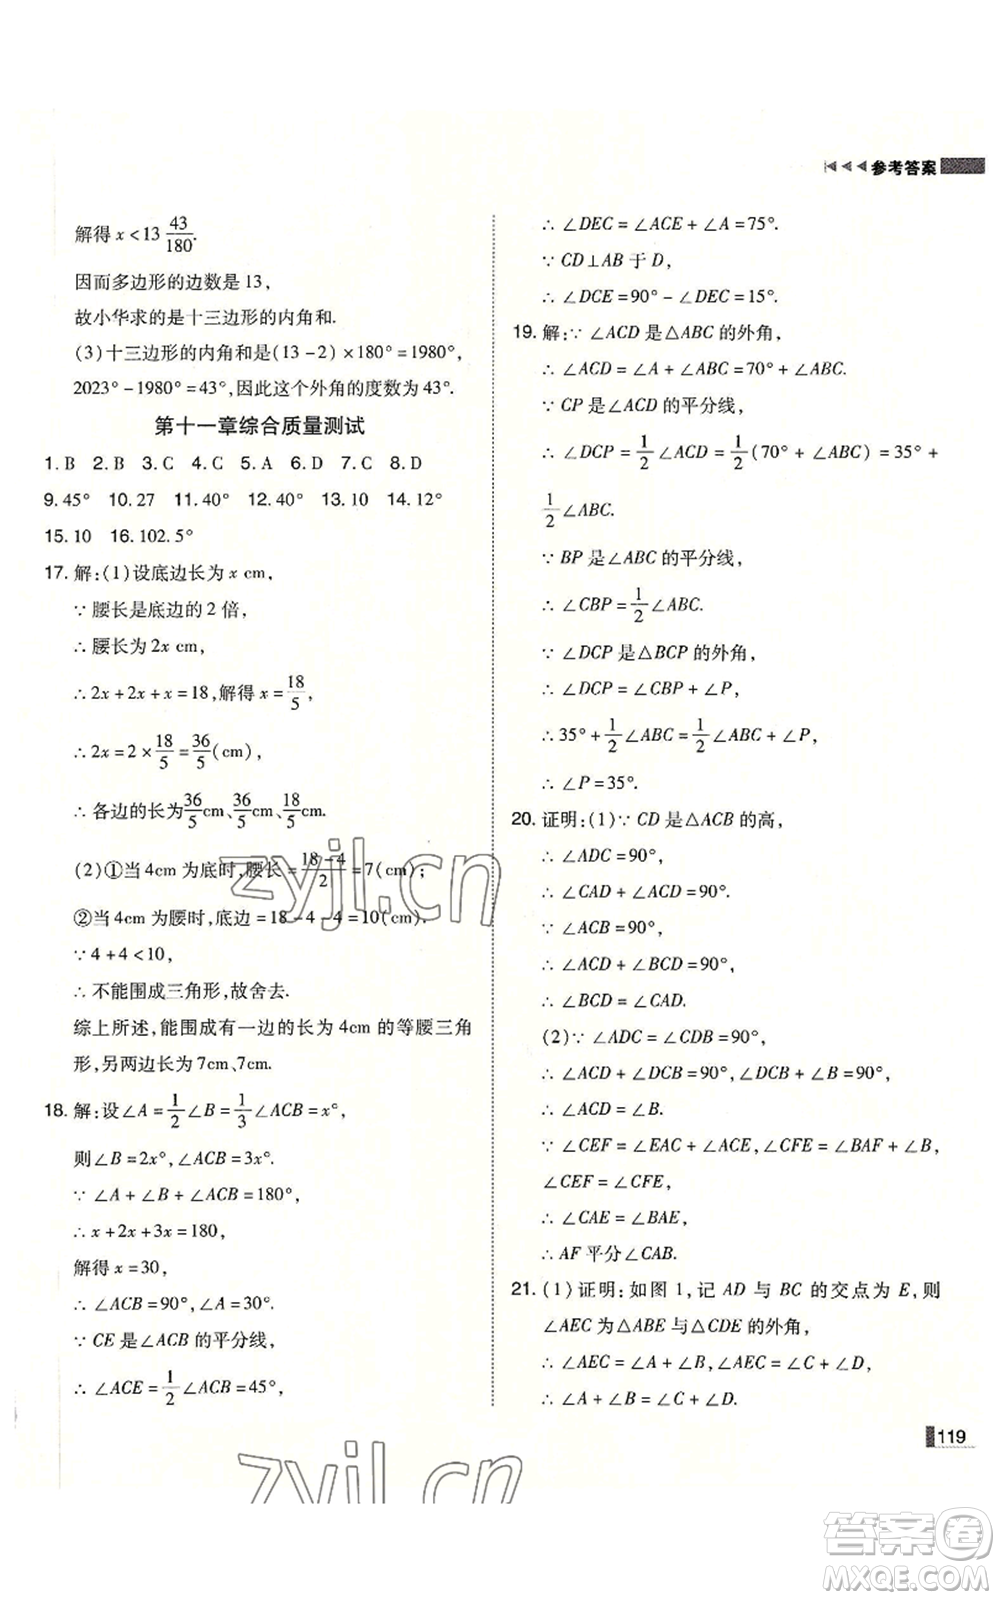 参考答案
解得 x < 13 43/180.
因而多边形的边数是 13,
故小华求的是十三边形的内角和.
(3)十三边形的内角和是(13-2)×180°=1980°,
2023°-1980°=43°,因此这个外角的度数为 43°.
第十一章综合质量测试
1. B 2. B 3. C 4. C 5. A 6. D 7. C 8. D
9. 45° 10. 27 11. 40° 12. 40° 13. 10 14. 12°
15. 10 16. 102.5°
17. 解:(1)设底边长为 x cm,
∵ 腰长是底边的 2 倍,
∴ 腰长为 2x cm,
∴ 2x+2x+x=18,解得 x=18/5,
∴ 2x=2×18/5=36/5(cm),
∴ 各边的长为36/5cm、36/5cm、18/5cm.
(2)①当 4cm 为底时,腰长=(18-4)/2=7(cm);
②当 4cm 为腰时,底边=18-4-4=10(cm).
∵ 4+4<10,
∴ 不能围成三角形,故舍去.
综上所述,能围成有一边的长为 4cm 的等腰三角
形,另两边长为 7cm、7cm.
18. 解:设∠A=1/2∠B=1/3∠ACB=x°,
则∠B=2x°,∠ACB=3x°.
∵ ∠A+∠B+∠ACB=180°,
∴ x+2x+3x=180,
解得 x=30,
∴ ∠ACB=90°,∠A=30°.
∵ CE 是∠ACB 的平分线,
∴ ∠ACE=1/2∠ACB=45°,
∴ ∠DEC=∠ACE+∠A=75°.
∵ CD⊥AB 于 D,
∴ ∠DCE=90°-∠DEC=15°.
19. 解:∵ ∠ACD 是△ABC 的外角,
∴ ∠ACD=∠A+∠ABC=70°+∠ABC.
∵ CP 是∠ACD 的平分线,
∴ ∠DCP=1/2∠ACD=1/2(70°+∠ABC)=35°+
1/2∠ABC.
∵ BP 是∠ABC 的平分线,
∴ ∠CBP=1/2∠ABC.
∵ ∠DCP 是△BCP 的外角,
∴ ∠DCP=∠CBP+∠P,
∴ 35°+1/2∠ABC=1/2∠ABC+∠P,
∴ ∠P=35°.
20. 证明:(1)∵ CD 是△ACB 的高,
∴ ∠ADC=90°,
∴ ∠CAD+∠ACD=90°.
∵ ∠ACB=90°,
∴ ∠ACD+∠BCD=90°,
∴ ∠BCD=∠CAD.
(2)∵ ∠ADC=∠CDB=90°,
∴ ∠CAD+∠ACD=90°,∠DCB+∠B=90°,
∴ ∠ACD=∠B.
∵ ∠CEF=∠EAC+∠ACE,∠CFE=∠BAF+∠B,
∠CEF=∠CFE,
∴ ∠CAE=∠BAE,
∴ AF 平分∠CAB.
21. (1)证明:如图 1,记 AD 与 BC 的交点为 E,则
∠AEC 为△ABE 与△CDE 的外角,
∴ ∠AEC=∠A+∠B=∠C+∠D,
∴ ∠A+∠B=∠C+∠D.
119
zyjl.cn
zyjl.cn
答案卷
MXQE.COM